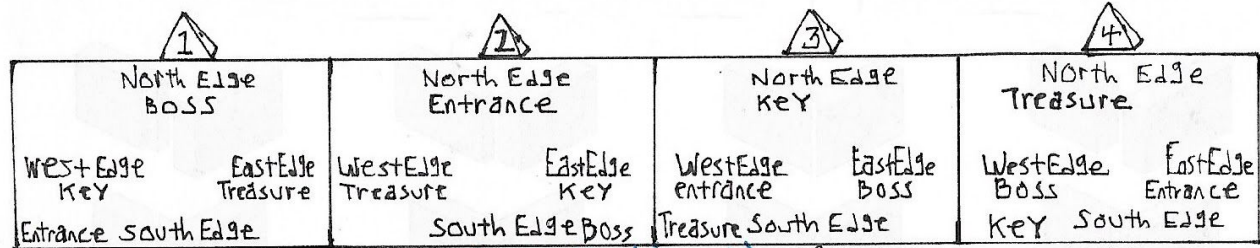 1
North Edge
BOSS
West Edge
KEY
East Edge
Treasure
Entrance South Edge
2
North Edge
Entrance
West Edge
Treasure
East Edge
KEY
South Edge Boss
3
North Edge
KEY
West Edge
entrance
East Edge
BOSS
Treasure South Edge
4
North Edge
Treasure
West Edge
BOSS
East Edge
Entrance
KEY South Edge